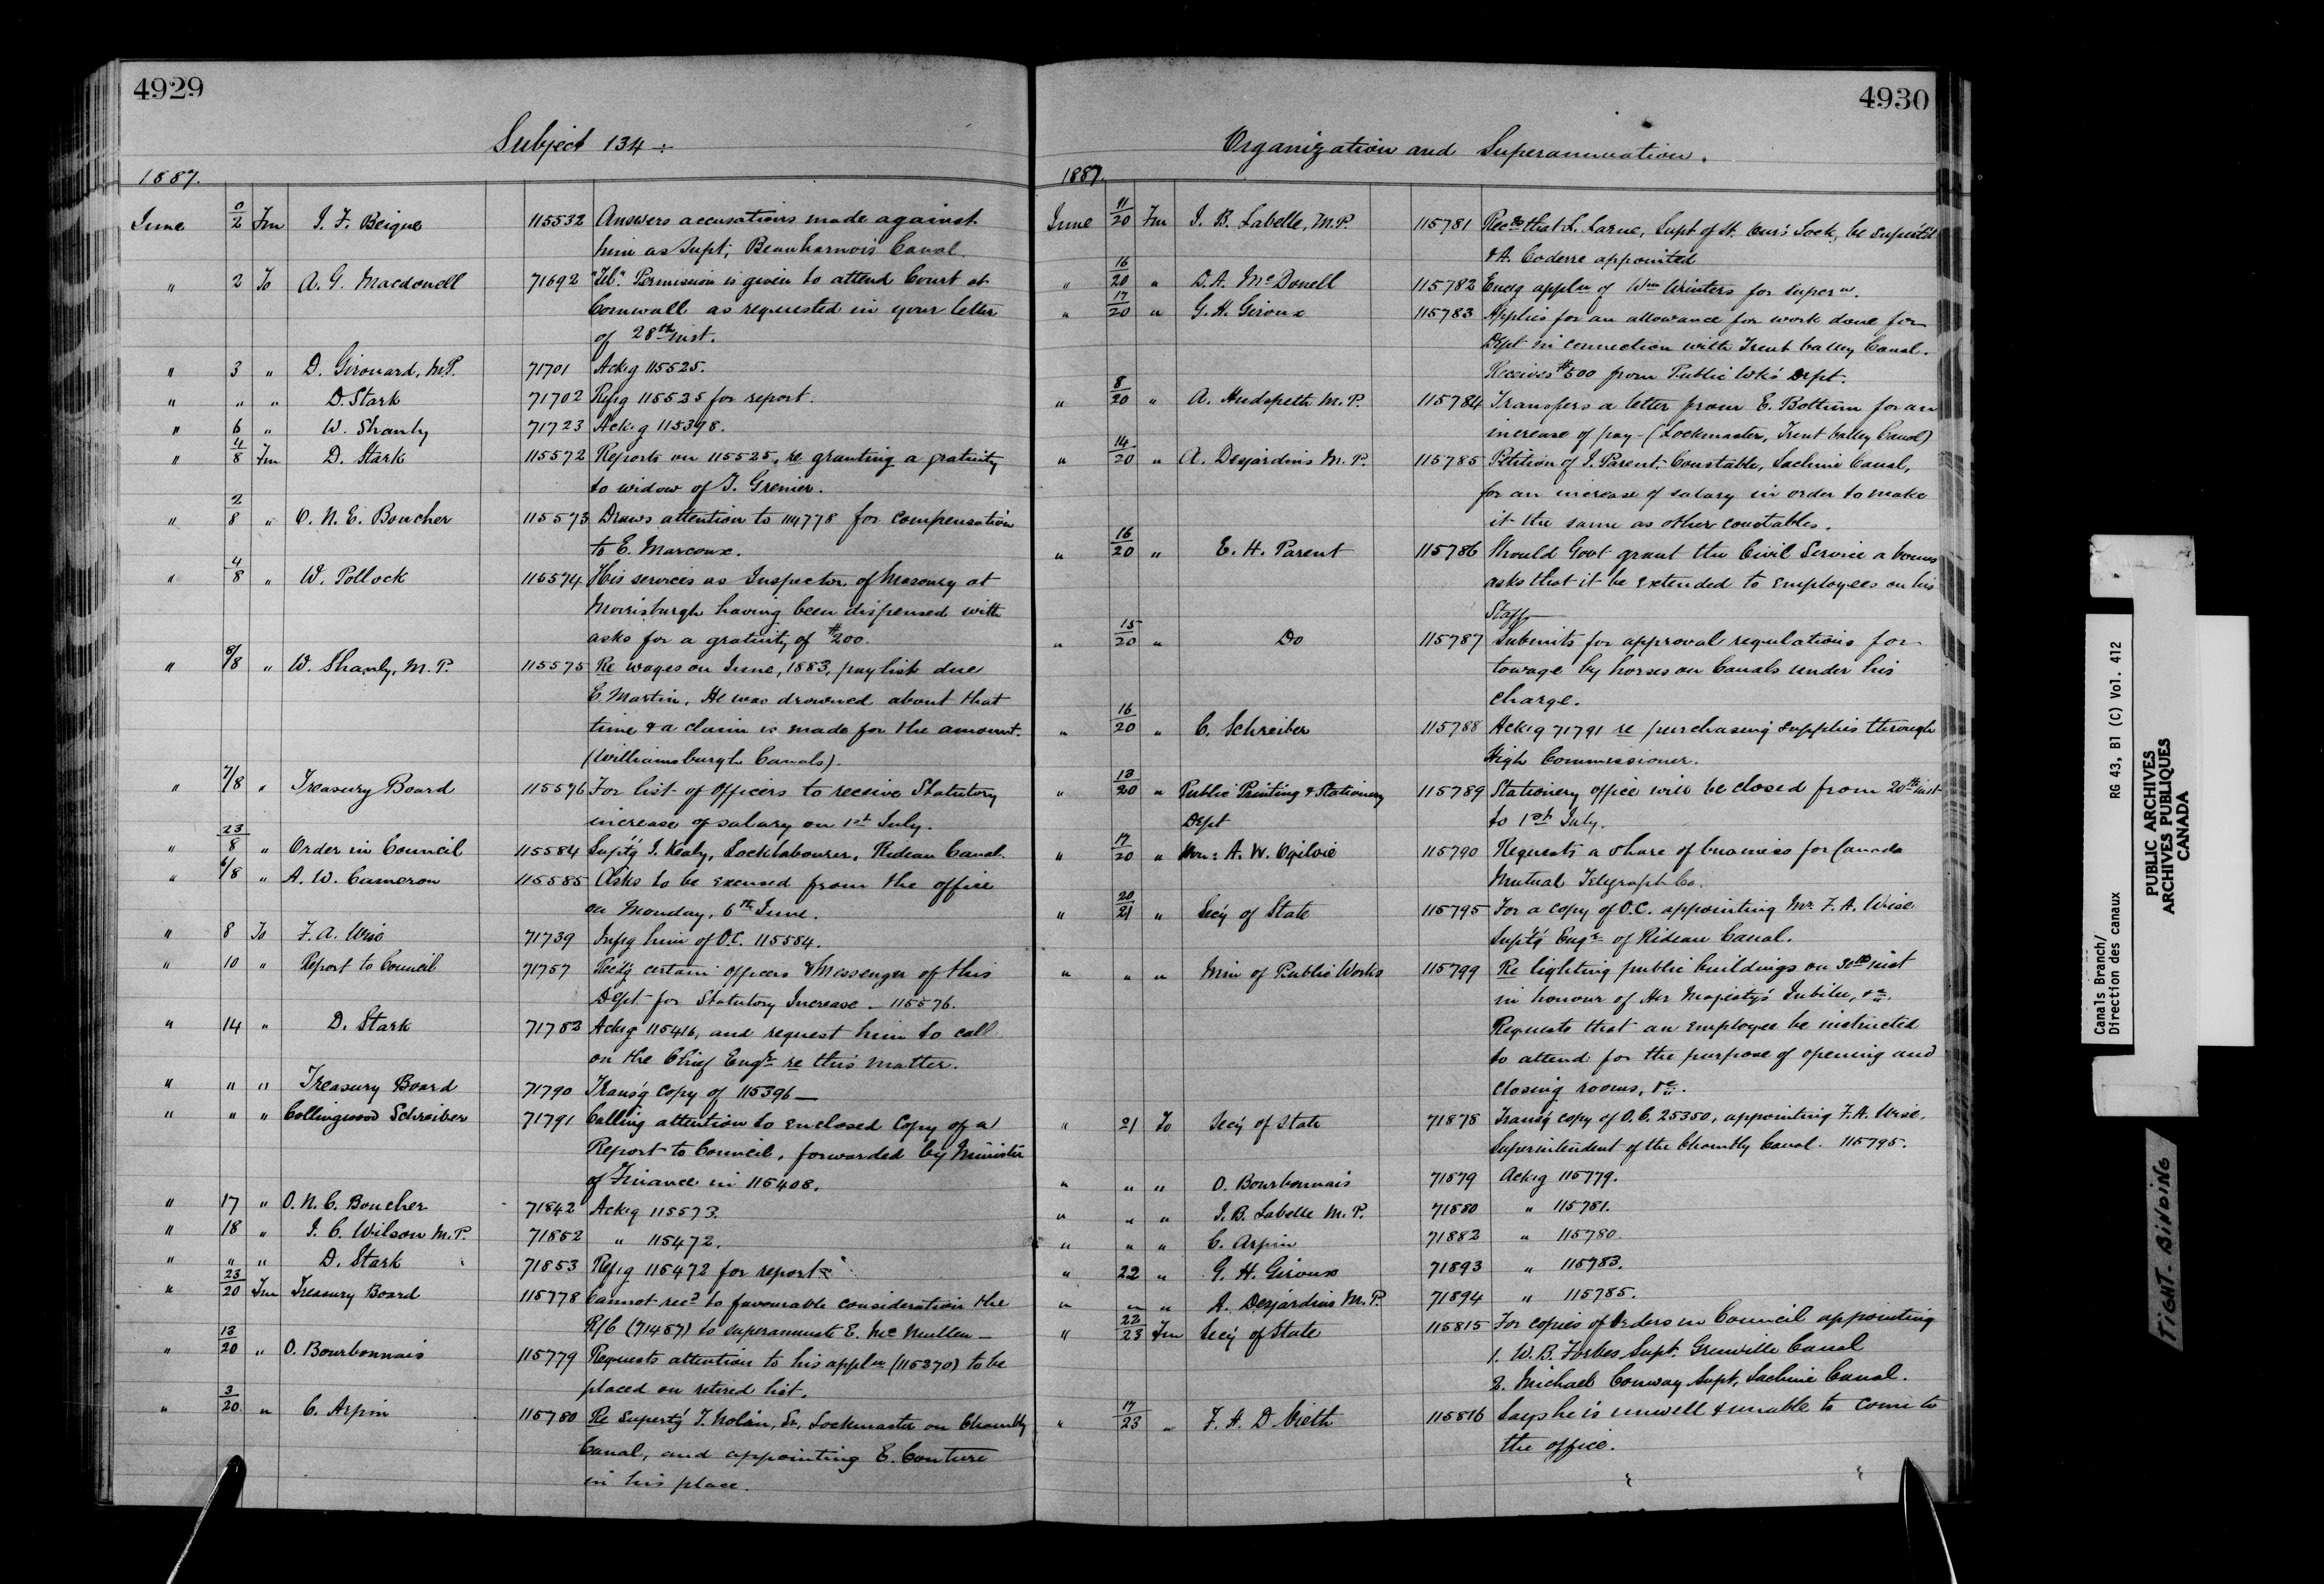 4929
Subject 134 ÷
1887.
June 0/2 Fm J. F. Beique 115532 Answers accusations made against
him as Supt, Beauharnois Canal.
" 2 To A. G. Macdonell 71692 "Tel." Permission is given to attend Court at
Cornwall as requested in your letter
of 28th inst.
" 3 " D. Girouard, M.P. 71701 Ackg 115525.
" " " D. Stark 71702 Refg 115525 for report.
" 6 " W. Shanly 71723 Ackg 115398.
" 4/8 Fm D. Stark 115572 Reports on 115525, re granting a gratuity
to widow of J. Grenier.
" 2/8 " O. N. E. Boucher 115573 Draws attention to 114778 for compensation
to E. Marcoux.
" 4/8 " W. Pollock 115574 His services as Inspector of Masonry at
Morrisburgh having been dispensed with
asks for a gratuity of $200.
" 6/8 " W. Shanly, M.P. 115575 Re wages on June, 1883, paylist due
C. Martin. He was drowned about that
time & a claim is made for the amount.
(Williamsburgh Canals).
" 7/8 " Treasury Board 115576 For list of Officers to receive Statutory
increase of salary on 1st July.
" 23/8 " Order in Council 115584 Suptg J. Kealy, Locklabourer, Rideau Canal.
" 6/8 " A. W. Cameron 115585 Asks to be excused from the office
on Monday, 6th June.
" 8 To F. A. Wise 71739 Infg him of O.C. 115584.
" 10 " Report to Council 71757 Recdg certain officers & Messenger of this
Dept for Statutory Increase – 115576.
" 14 " D. Stark 71782 Ackg 115416, and request him to call
on the Chief Engr re this matter.
" " " Treasury Board 71790 Transg copy of 115396 —
" " " Collingwood Schreiber 71791 Calling attention to enclosed Copy of a
Report to Council, forwarded by Minister
of Finance in 115408.
" 17 " O. N. E. Boucher 71842 Ackg 115573.
" 18 " J. C. Wilson M.P. 71852 " 115472.
" " " D. Stark 71853 Refg 115472 for report
" 23/20 Fm Treasury Board 115778 Cannot recd to favourable consideration the
R/C (71457) to superannuate E. McMullen —
" 13/20 " O. Bourbonnais 115779 Requests attention to his appln (115270) to be
placed on retired list.
" 3/20 " C. Arpin 115780 Re Supertg T. Nolan, Sr, Lockmaster on Chambly
Canal, and appointing E. Couture
in his place.
4930
Organization and Superannuation.
1887.
June 11/20 Fm J. B. Labelle, M.P. 115781 Recds that L. Larue, Supt of St. Ours Lock, be superted
& A. Coderre appointed
" 16/20 " D. A. McDonell 115782 Encg appln of Wm Winters for supern.
" 17/20 " G. H. Giroux 115783 Applies for an allowance for work done for
Dept in connection with Trent Valley Canal.
Receives $500 from Public Wk's Dept.
" 8/20 " A. Hudspeth M.P. 115784 Transfers a letter from E. Bottum for an
increase of pay – (Lockmaster, Trent Valley Canal)
" 14/20 " A. Desjardins M.P. 115785 Petition of J. Parent, Constable, Lachine Canal,
for an increase of salary in order to make
it the same as other constables.
" 16/20 " E. H. Parent 115786 Should Govt grant the Civil Service a bonus
asks that it be extended to employees on his
Staff
" 15/20 " Do 115787 Submits for approval regulations for
towage by horses on Canals under his
charge.
" 16/20 " C. Schreiber 115788 Ackg 71791 re purchasing supplies through
High Commissioner.
" 13/20 " Public Printing & Stationery 115789 Stationery office will be closed from 20th inst
Dept to 1st July.
" 17/20 " Hon: A. W. Ogilvie 115790 Requests a share of business for Canada
Mutual Telegraph Co.
" 20/21 " Sec'y of State 115795 For a copy of O.C. appointing Mr. F. A. Wise
Suptg Engr of Rideau Canal.
" " " Min of Public Works 115799 Re lighting public buildings on 30th inst
in honour of Her Majesty's Jubilee, &c.
Requests that an employee be instructed
to attend for the purpose of opening and
closing rooms, &c.
" 21 To Sec'y of State 71878 Transg copy of O.C. 25350, appointing F. A. Wise,
Superintendent of the Chambly Canal. 115795.
" " " O. Bourbonnais 71879 Ackg 115779.
" " " J. B. Labelle M.P. 71880 " 115781.
" " " C. Arpin 71882 " 115780.
" 22 " G. H. Giroux 71893 " 115783.
" " " A. Desjardins M.P. 71894 " 115785.
" 22/23 Fm Sec'y of State 115815 For copies of Orders in Council appointing
1. W. B. Forbes Supt. Grenville Canal
2. Michael Conway Supt, Lachine Canal.
" 17/23 " F. H. D. Vieth 115816 Says he is unwell & unable to come to
the office.
Canals Branch/
Direction des canaux
RG 43, B1 (C) Vol. 412
PUBLIC ARCHIVES
ARCHIVES PUBLIQUES
CANADA
TIGHT-BINDING